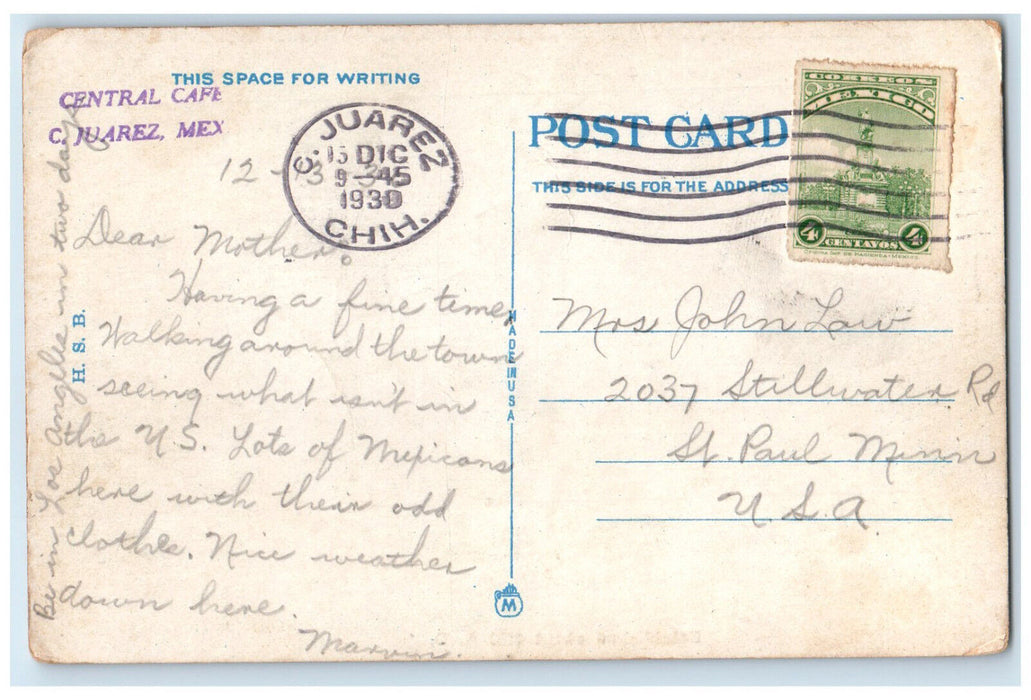 THIS SPACE FOR WRITING
CENTRAL CAFE
C. JUAREZ, MEX
C. JUAREZ
15 DIC
9-45
1930
CHIH.
12 - 13
Dear Mother:
Having a fine time,
Walking around the town
seeing what isn't in
the U.S. Lots of Mexicans
here with their odd
clothes. Nice weather
down here.
Marvin.
Be in Los Angeles in two days
H. S. B.
MADE IN USA
M
POST CARD
THIS SIDE IS FOR THE ADDRESS
CORREOS
MEXICO
4 CENTAVOS 4
Mrs John Law
2037 Stillwater Rd
St. Paul Minn
U S A